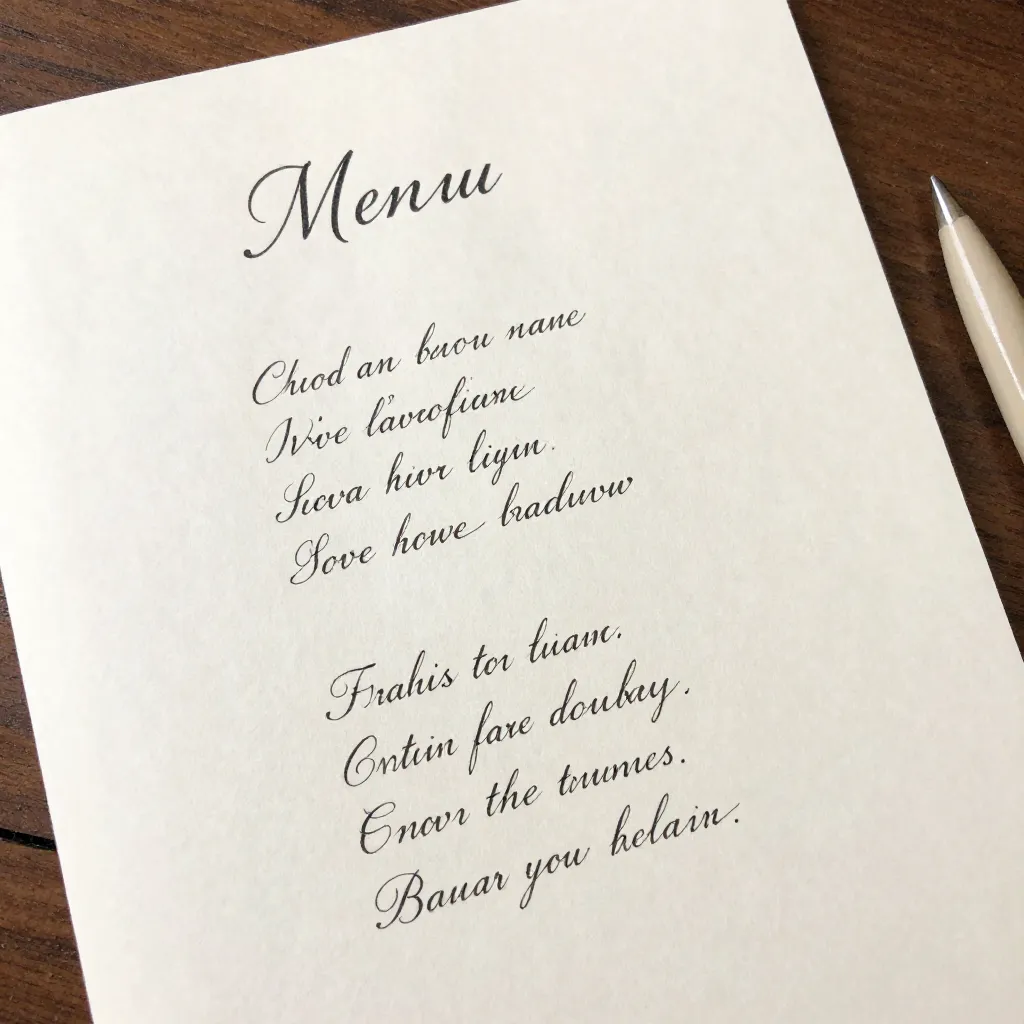 Menuu
Chuod an buou nane
Nive l'avrofiune
Sicva hivr ligyn.
Sove howe braduvw
Frahis tor luam.
Cntiin fare doubay.
Cnovr the tuumes.
Bauar you belain.